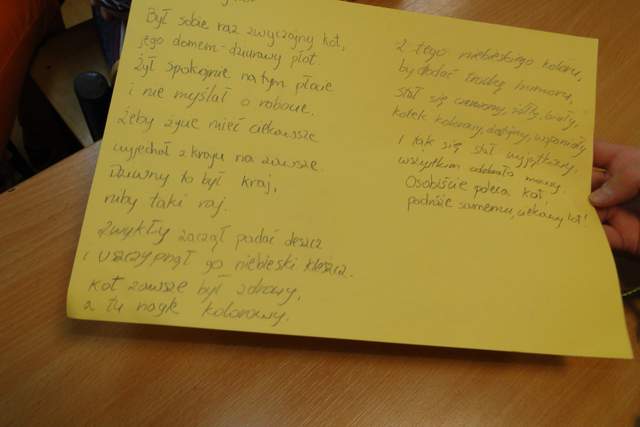 Był sobie raz zwyczajny kot,
jego domem - dziurawy płot
Żył spokojnie na tym płocie
i nie myślał o robocie.
Żeby życie mieć ciekawsze
wyjechał z kraju na zawsze.
Dziwny to był kraj,
niby taki raj.
Zwykły zaczął padać deszcz
i uszczypnął go niebieski kleszcz.
Kot zawsze był zdrowy,
a tu nagle kolorowy.
Z tego niebieskiego koloru,
by dodać troszkę humoru,
stał się czerwony, żółty, biały,
kotek kolorowy, dostojny, wspaniały
I tak się stał wyjątkowy,
wszystkim odebrało mowy.
Osobiście poleca kot
podróże samemu, ciekawy lot!